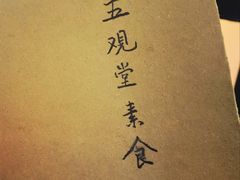 五观堂素食